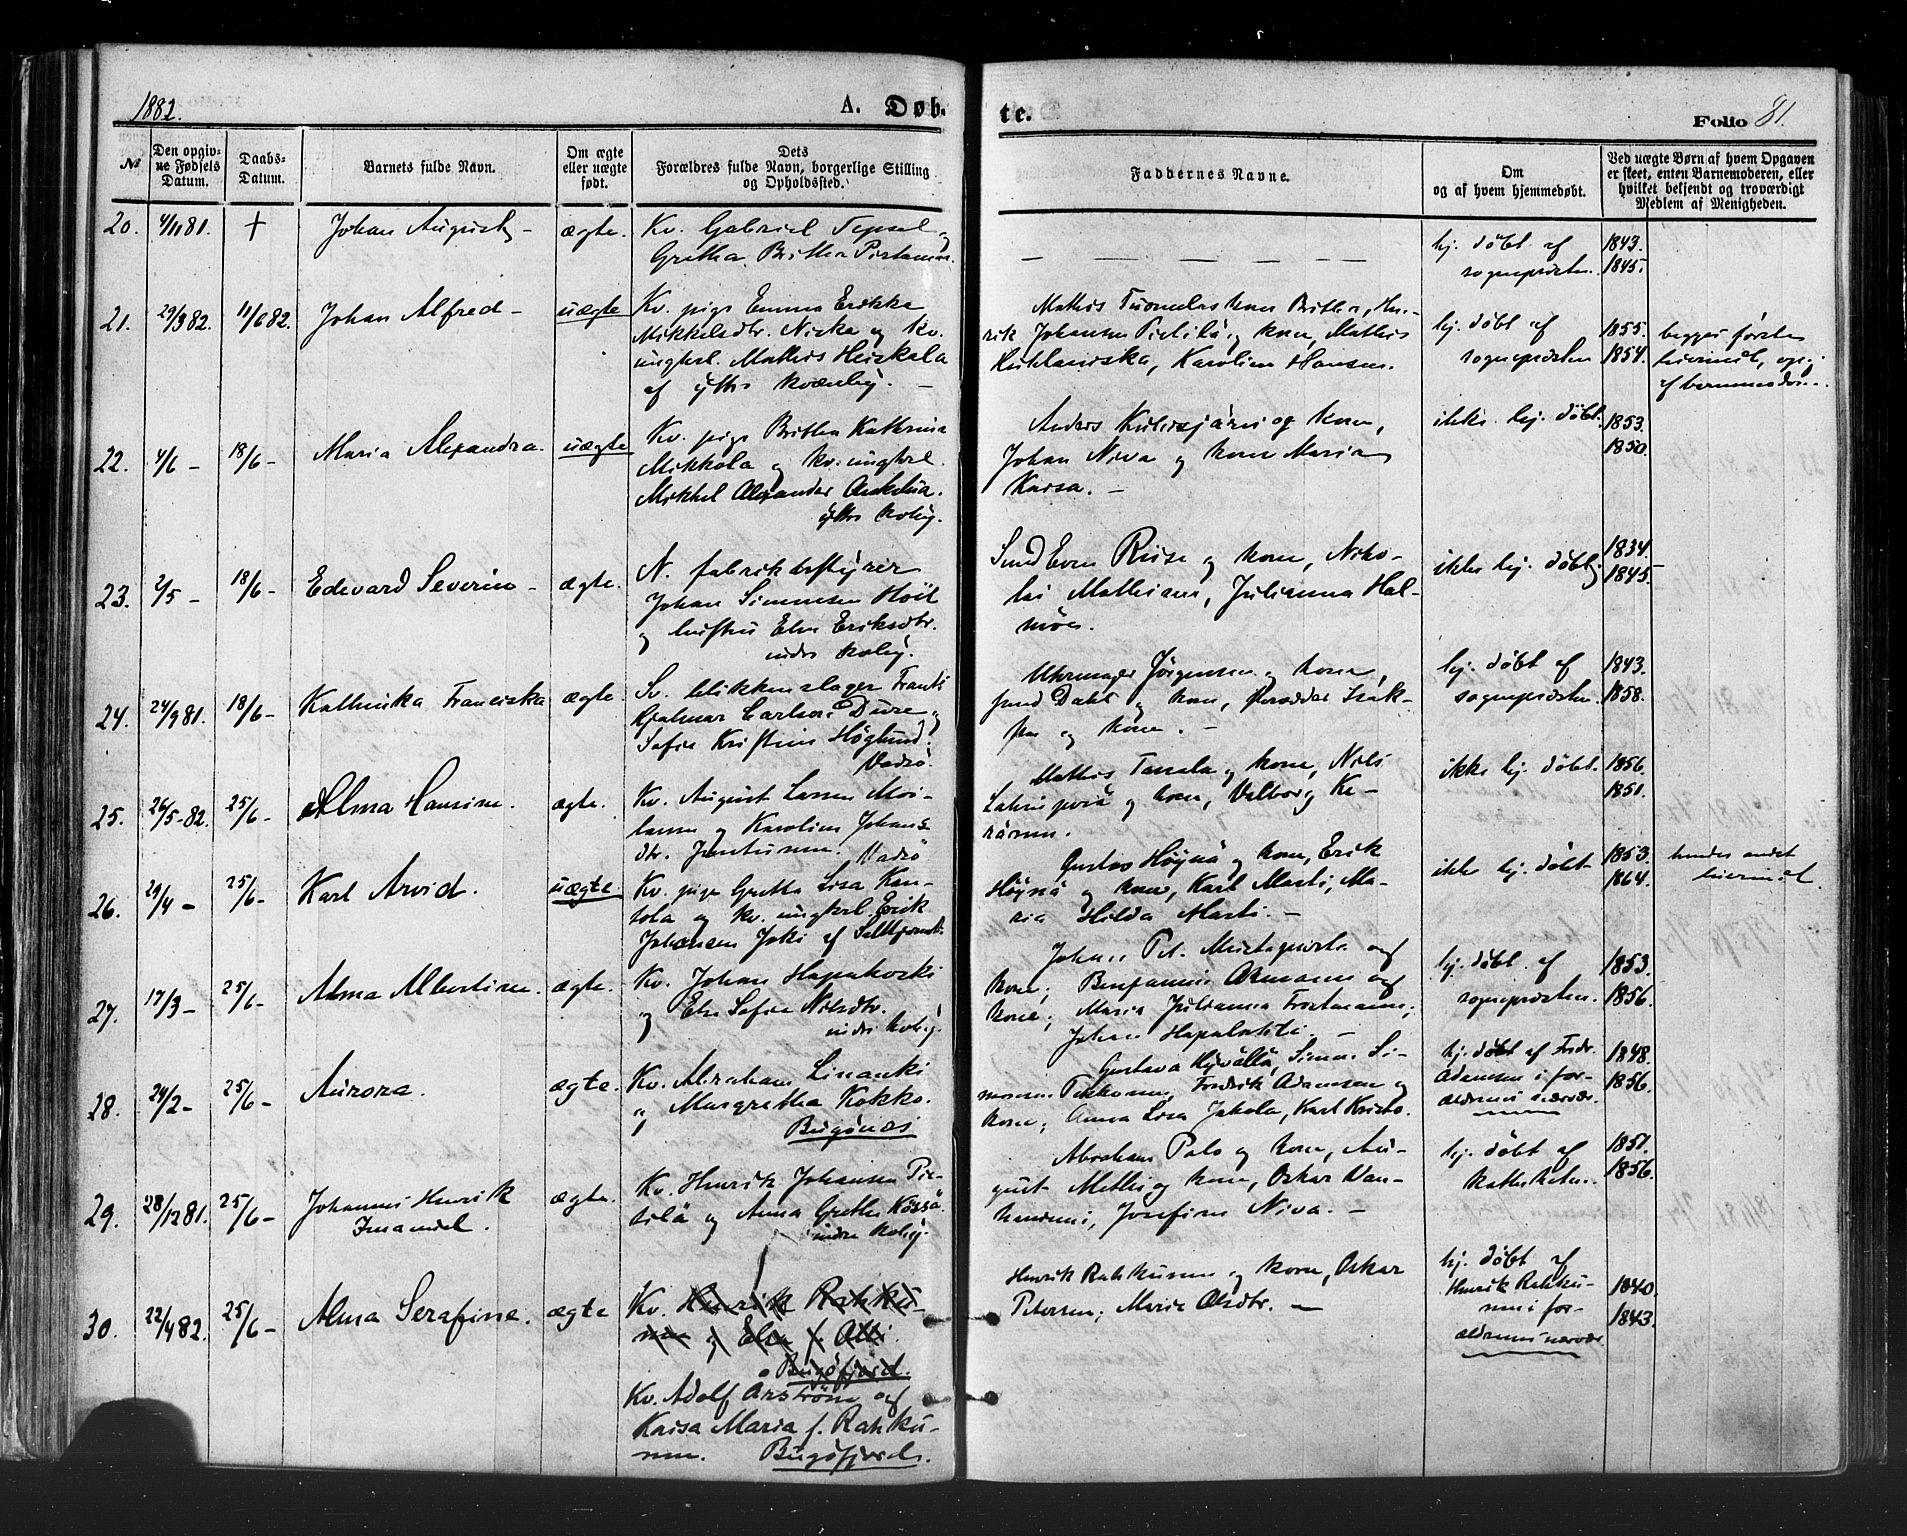 1882.
A. Døb-
te.
Folio 81.
№
Den opgiv-
ne Fødsels
Datum.
Daabs-
Datum.
Barnets fulde Navn.
Om ægte
eller uægte
født.
Dets
Forældres fulde Navn, borgerlige Stilling
og Opholdssted.
Faddernes Navne.
Om
og af hvem hjemmedøbt.
Ved uægte Børn af hvem Opgaven
er skeet, enten Barnemoderen, eller
hvilket bekjendt og troværdigt
Medlem af Menigheden.
20. 4/11 81. + Johan August – ægte.
Kv. Gabriel
Gretha Britha
– – – – – –
hj. döbt af
sognepræsten.
1843.
1845.
21. 29/3 82. 11/6 82. Johan Alfred – uægte
Kv. pige Emma Erikka
Mikkelsdtr. Niska og kv.
ungkarl. Mathis Heiskala
af ytre kvænby. –
Mathis kone Britha, Hen-
rik Johansen og kone, Mathis
Karolina Hansen.
hj. döbt af
sognepræsten
1855.
1854.
begges første
leiermål, opg.
af barnemoder.
22. 4/6 – 18/6 – Maria Alexandra. uægte
Kv. pige Britha Kathrina
Mikkola og kv. ungkarl.
Mikkel Alexander
ytre kvby.
Anders og kone,
Johan Niva og kone Maria
Kaisa. –
ikke hj. döbt.
1853.
1850.
23. 2/5 – 18/6 – Edevard Severin – ægte.
N. fabrikbestyrer
Johan Simonsen Höil
og hustru Else Eriksdtr.
indre kvby.
Smed Even Riise og kone, Niko-
lai Mathisen, Julianna Hal-
möe.
ikke hj. döbt
1834.
1845.
24. 24/9 81. 18/6 – Kathinka Franciska ægte.
Sv. blikkenslager Frants
Hjalmar Carlson og
Sofie Kristine Höglund.
Vadsö.
Uhrmager Jörgensen og kone,
smed Dahl og kone, Isak-
sen og kone. –
hj. döbt af
sognepræsten.
1843.
1858.
25. 26/5-82. 25/6 – Alma Hansine. ægte.
Kv. August Larsen Moi-
lanen og Karolina Johans-
dtr. Vadsö
Mathis Tanela og kone, Nils
og kone, Valborg Ke-
ränen.
ikke hj. döbt.
1856.
1851.
26. 29/4 – 25/6 – Karl Arvid. uægte.
Kv. pige Gretha Lisa Kan-
tola og kv. ungkarl. Erik
Johansen Joki af
Gustav Höynä og kone, Erik
Höynä og kone, Karl Marti, Ma-
ria Hilda Marti. –
ikke hj. döbt
1853.
1864.
hendes andet
leiermål.
27. 17/3 – 25/6 – Alma Albertine. ægte.
Kv. Johan Hapakoski
og Else Sofie Nilsdtr.
indre kvby.
Johan Pet. og
kone; Benjamin og
kone; Maria Julianna Frostmann;
Johan
hj. döbt af
sognepræsten.
1853.
1856.
28. 24/2 – 25/6 – Aurora. ægte.
Kv. Abraham Linanki
" Margretha Kokko.
Bugönæs
Gustava Hyvällä, Simon Si-
monsen Pekkonen, Fredrik Adamsen og
kone; Anna Lisa Jakola, Karl Kristo.
hj. döbt af Fredr.
Adamsen i for-
ældrenes nærvær.
1848.
1856.
29. 28/12 81. 25/6 – Johannes Henrik
Imanuel. ægte.
Kv. Henrik Johansen Pie-
tilä og Anna Gretha
indre kvby.
Abraham Palo og kone, Au-
gust og kone, Oskar
Josefine Niva. –
hj. döbt af
kateketen.
1851.
1856.
30. 22/4 82. 25/6 – Alma Serafine. ægte
Kv. Henrik Rahku-
nen og Else f. Olli.
Bugöfjord.
Kv. Adolf Anström og
Kaisa Maria f. Rahku-
nen. Bugöfjord.
Henrik Rahkunen og kone, Oskar
Petersen; Maria Olsdtr. –
hj. döbt af
Henrik Rahku-
nen i for-
ældrenes nærvær
1840.
1843.